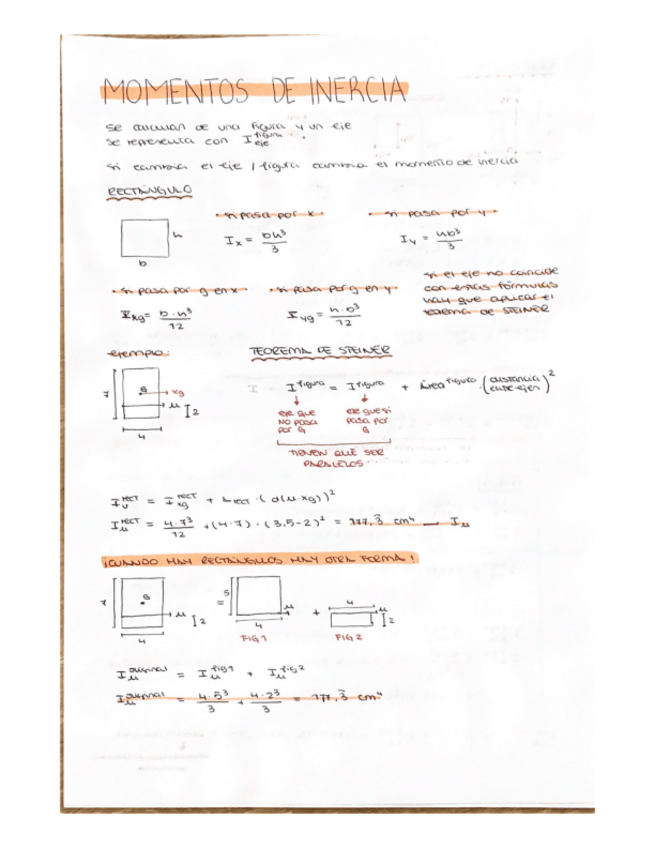 MOMENTOS DE INERCIA
se calculan de una figura y un eje
se representa con I figura eje
si cambia el eje / figura cambia el momento de inercia
RECTÁNGULO
• si pasa por x • • si pasa por y •
h
b
Ix = bh³/3 Iy = hb³/3
• si pasa por g en x • • si pasa por g en y •
Ixg = b·h³/12 Iyg = h·b³/12
si el eje no coincide
con estas fórmulas
hay que aplicar el
teorema de STEINER
ejemplo: TEOREMA DE STEINER
7 G xg
μ 2
4
I figura = I figura + área figura · (distancia entre ejes)²
eje que no pasa por G
eje que si pasa por G
TIENEN QUE SER
PARALELOS
Iμ rect = Ixg rect + Arect · (d(μ xg))²
Iμ rect = 4·7³/12 + (4·7) · (3,5-2)² = 177,3̂ cm⁴ — Iμ
¡CUANDO HAY RECTÁNGULOS HAY OTRA FORMA!
7 G μ 2 = 5 μ + 4 2
4 4
FIG 1 FIG 2
Iμ original = Iμ fig1 + Iμ fig2
Iμ original = 4·5³/3 + 4·2³/3 = 177,3̂ cm⁴